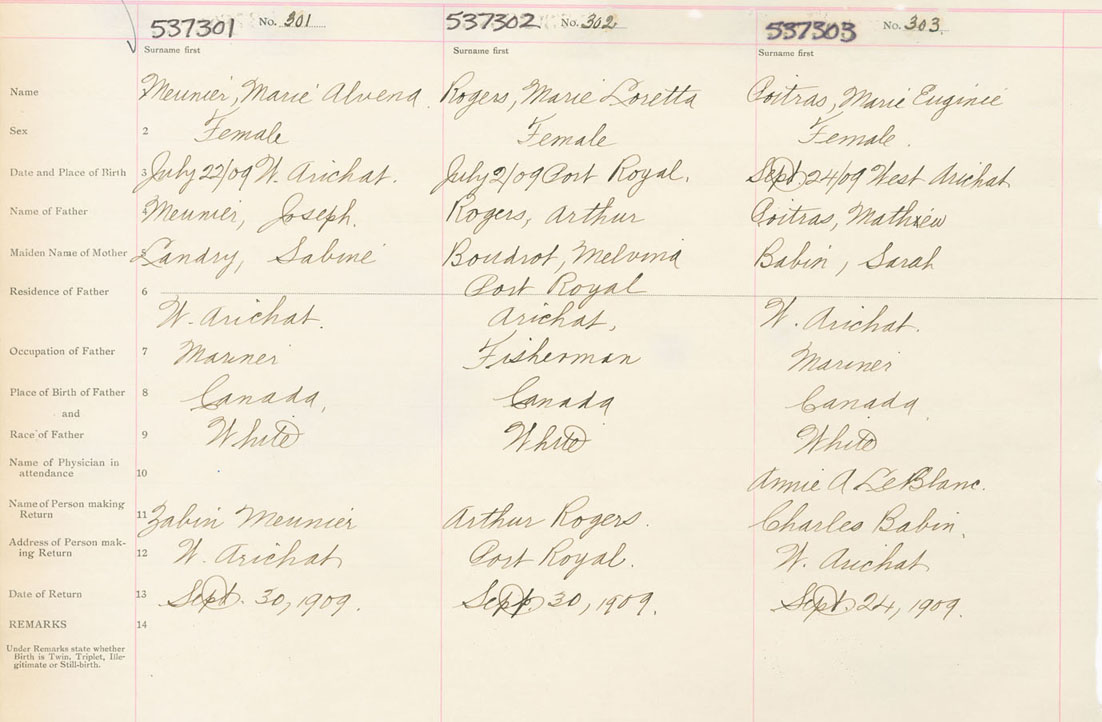 537301 No. 301 537302 No. 302 537303 No. 303
Surname first Surname first Surname first
Name Meunier, Marie Alvena Rogers, Marie Loretta Poitras, Marie Euginie
Sex 2 Female Female Female.
Date and Place of Birth 3 July 22/09 W. Arichat. July 2/09 Port Royal. Sept. 24/09 West Arichat
Name of Father 4 Meunier, Joseph. Rogers, Arthur Poitras, Mathieu
Maiden Name of Mother 5 Landry, Sabine Boudrot, Melvina Babin, Sarah
Residence of Father 6 Port Royal
W. Arichat. Arichat, W. Arichat.
Occupation of Father 7 Mariner Fisherman Mariner
Place of Birth of Father 8 Canada, Canada Canada
and
Race of Father 9 White White White
Name of Physician in
attendance 10 Annie A LeBlanc.
Name of Person making
Return 11 Zabin Meunier Arthur Rogers. Charles Babin,
Address of Person mak-
ing Return 12 W. Arichat Port Royal. W. Arichat
Date of Return 13 Sept. 30, 1909. Sept. 30, 1909. Sept. 24, 1909.
REMARKS 14
Under Remarks state whether
Birth is Twin, Triplet, Ille-
gitimate or Still-birth.